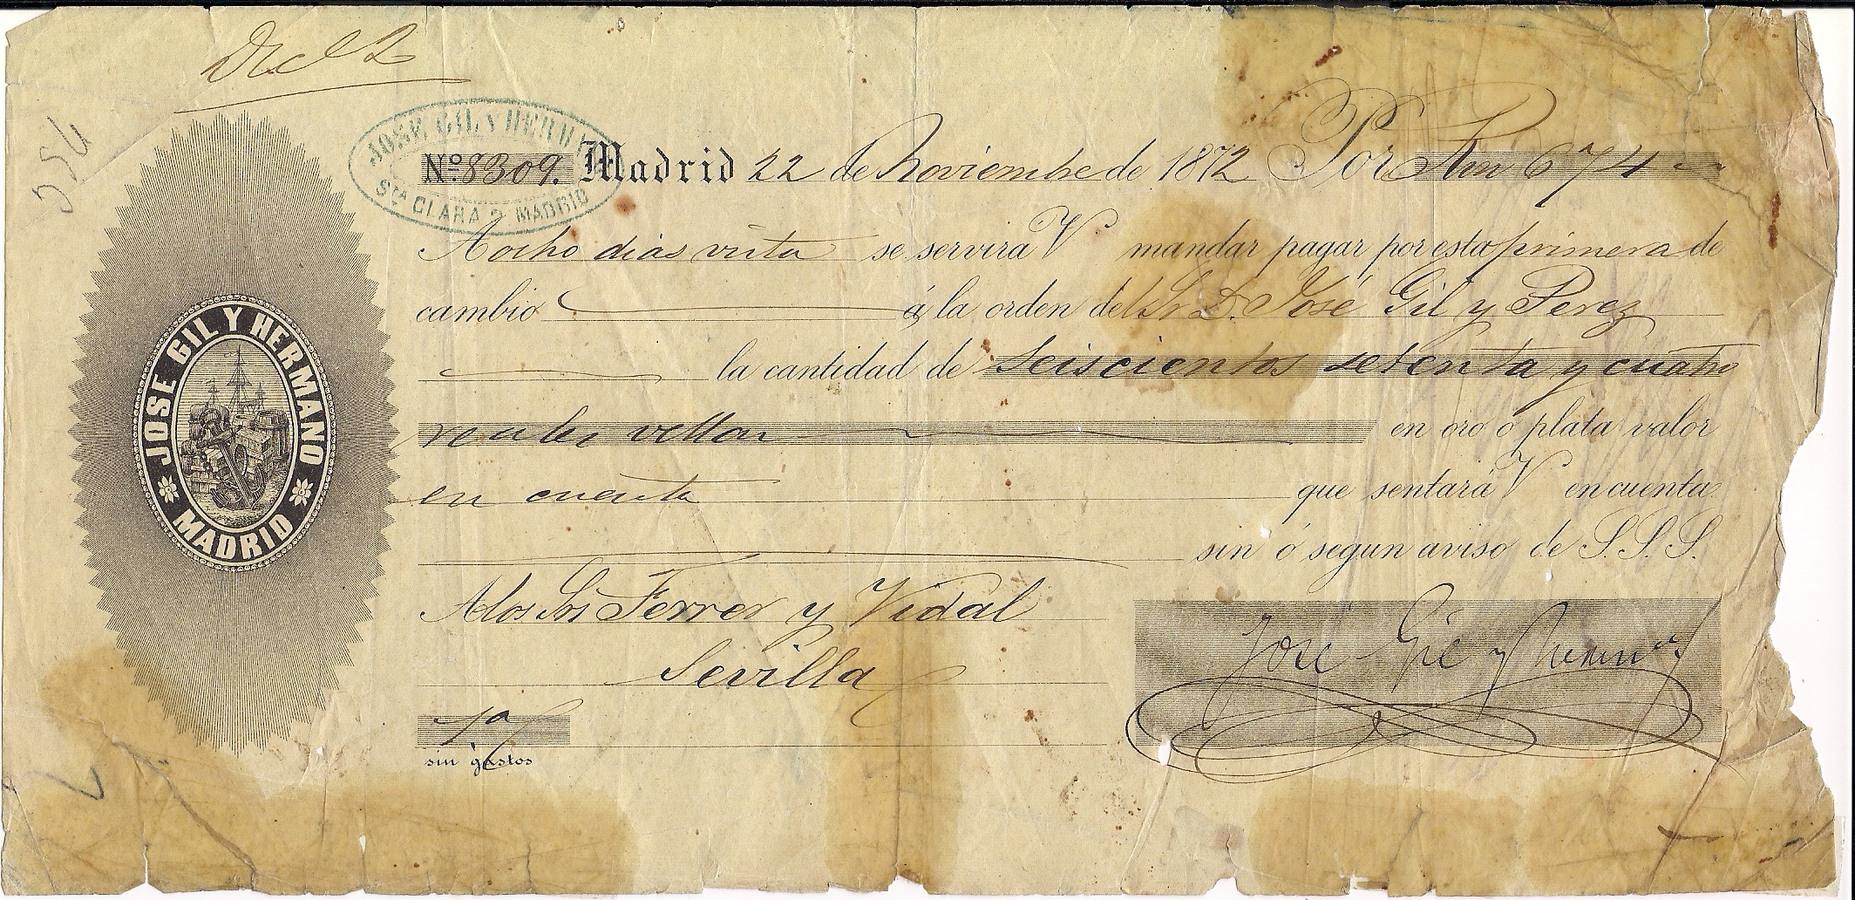 Dicl 2
554
JOSE GIL Y HERMANO
STA CLARA 2 MADRID
Nº 8309. Madrid 22 de Noviembre de 1872 Por Rvn 674
A ocho dias vista se servirá V mandar pagar por esta primera de
cambio á la orden del Sr. D. José Gil y Perez
la cantidad de seiscientos setenta y cuatro
reales vellon en oro ó plata valor
en cuenta que sentará V en cuenta
sin ó segun aviso de S.S.S.
A los Srs Ferrer y Vidal
Sevilla
José Gil y Herm.º
1ª
sin gastos
JOSE GIL Y HERMANO
MADRID
2